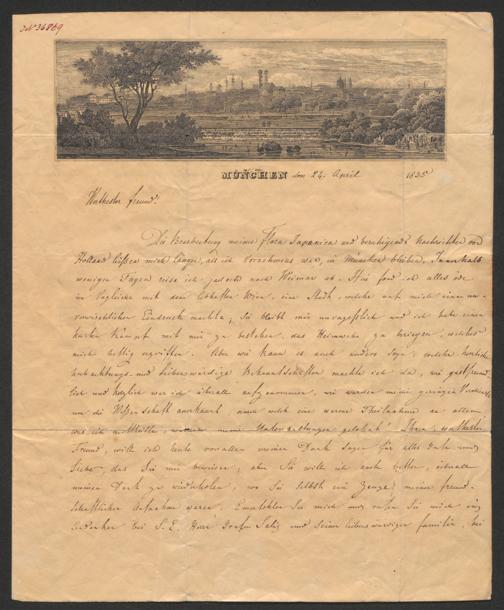 MÜNCHEN den 24. April 1835
Werthester Freund!
Die Bearbeitung meiner Flora Japonica und beruhigende Nachrichten von
Holland ließen mich länger, als ich Vornehmens war, in München bleiben. Innerhalb
wenigen Tagen reise ich jedoch nach Weimar ab. Hier fand ich alles öde
in Vergleiche mit dem lebhaften Wien, eine Stadt, welche auf mich einen un-
Eindruck machte, Sie bleibt mir unvergeßlich und ich hatte einen
harten Kampf mit mir zu bestehen, das Heimwehe zu besiegen, welches
mich heftig ergriffen. Aber wie kann es auch anders seyn: welche herrliche
und liebenswürdige Bekanntschaften machte ich da, wie gastfreund-
lich und herzlich war ich überall aufgenommen, wie wurden meine geringen Verdienste
um die Wissenschaft anerkannt, und welch eine warme Theilnahme an allem,
was ich mittheilte, meine Unternehmungen gelohnt! Ihnen, werthester
Freund, will ich heute vor allen meinen Dank sagen für alles Gute und
Liebe, das Sie mir bewiesen, aber Sie will ich auch bitten, überall
meinen Dank zu wiederholen, wo Sie selbst ein Zeuge meiner freund-
schaftlichen Aufnahme waren. Empfehlen Sie mich und rufen Sie mich ins
Andenken bei S. E. Herr Grafen und seiner liebenswürdigen Familie, bei